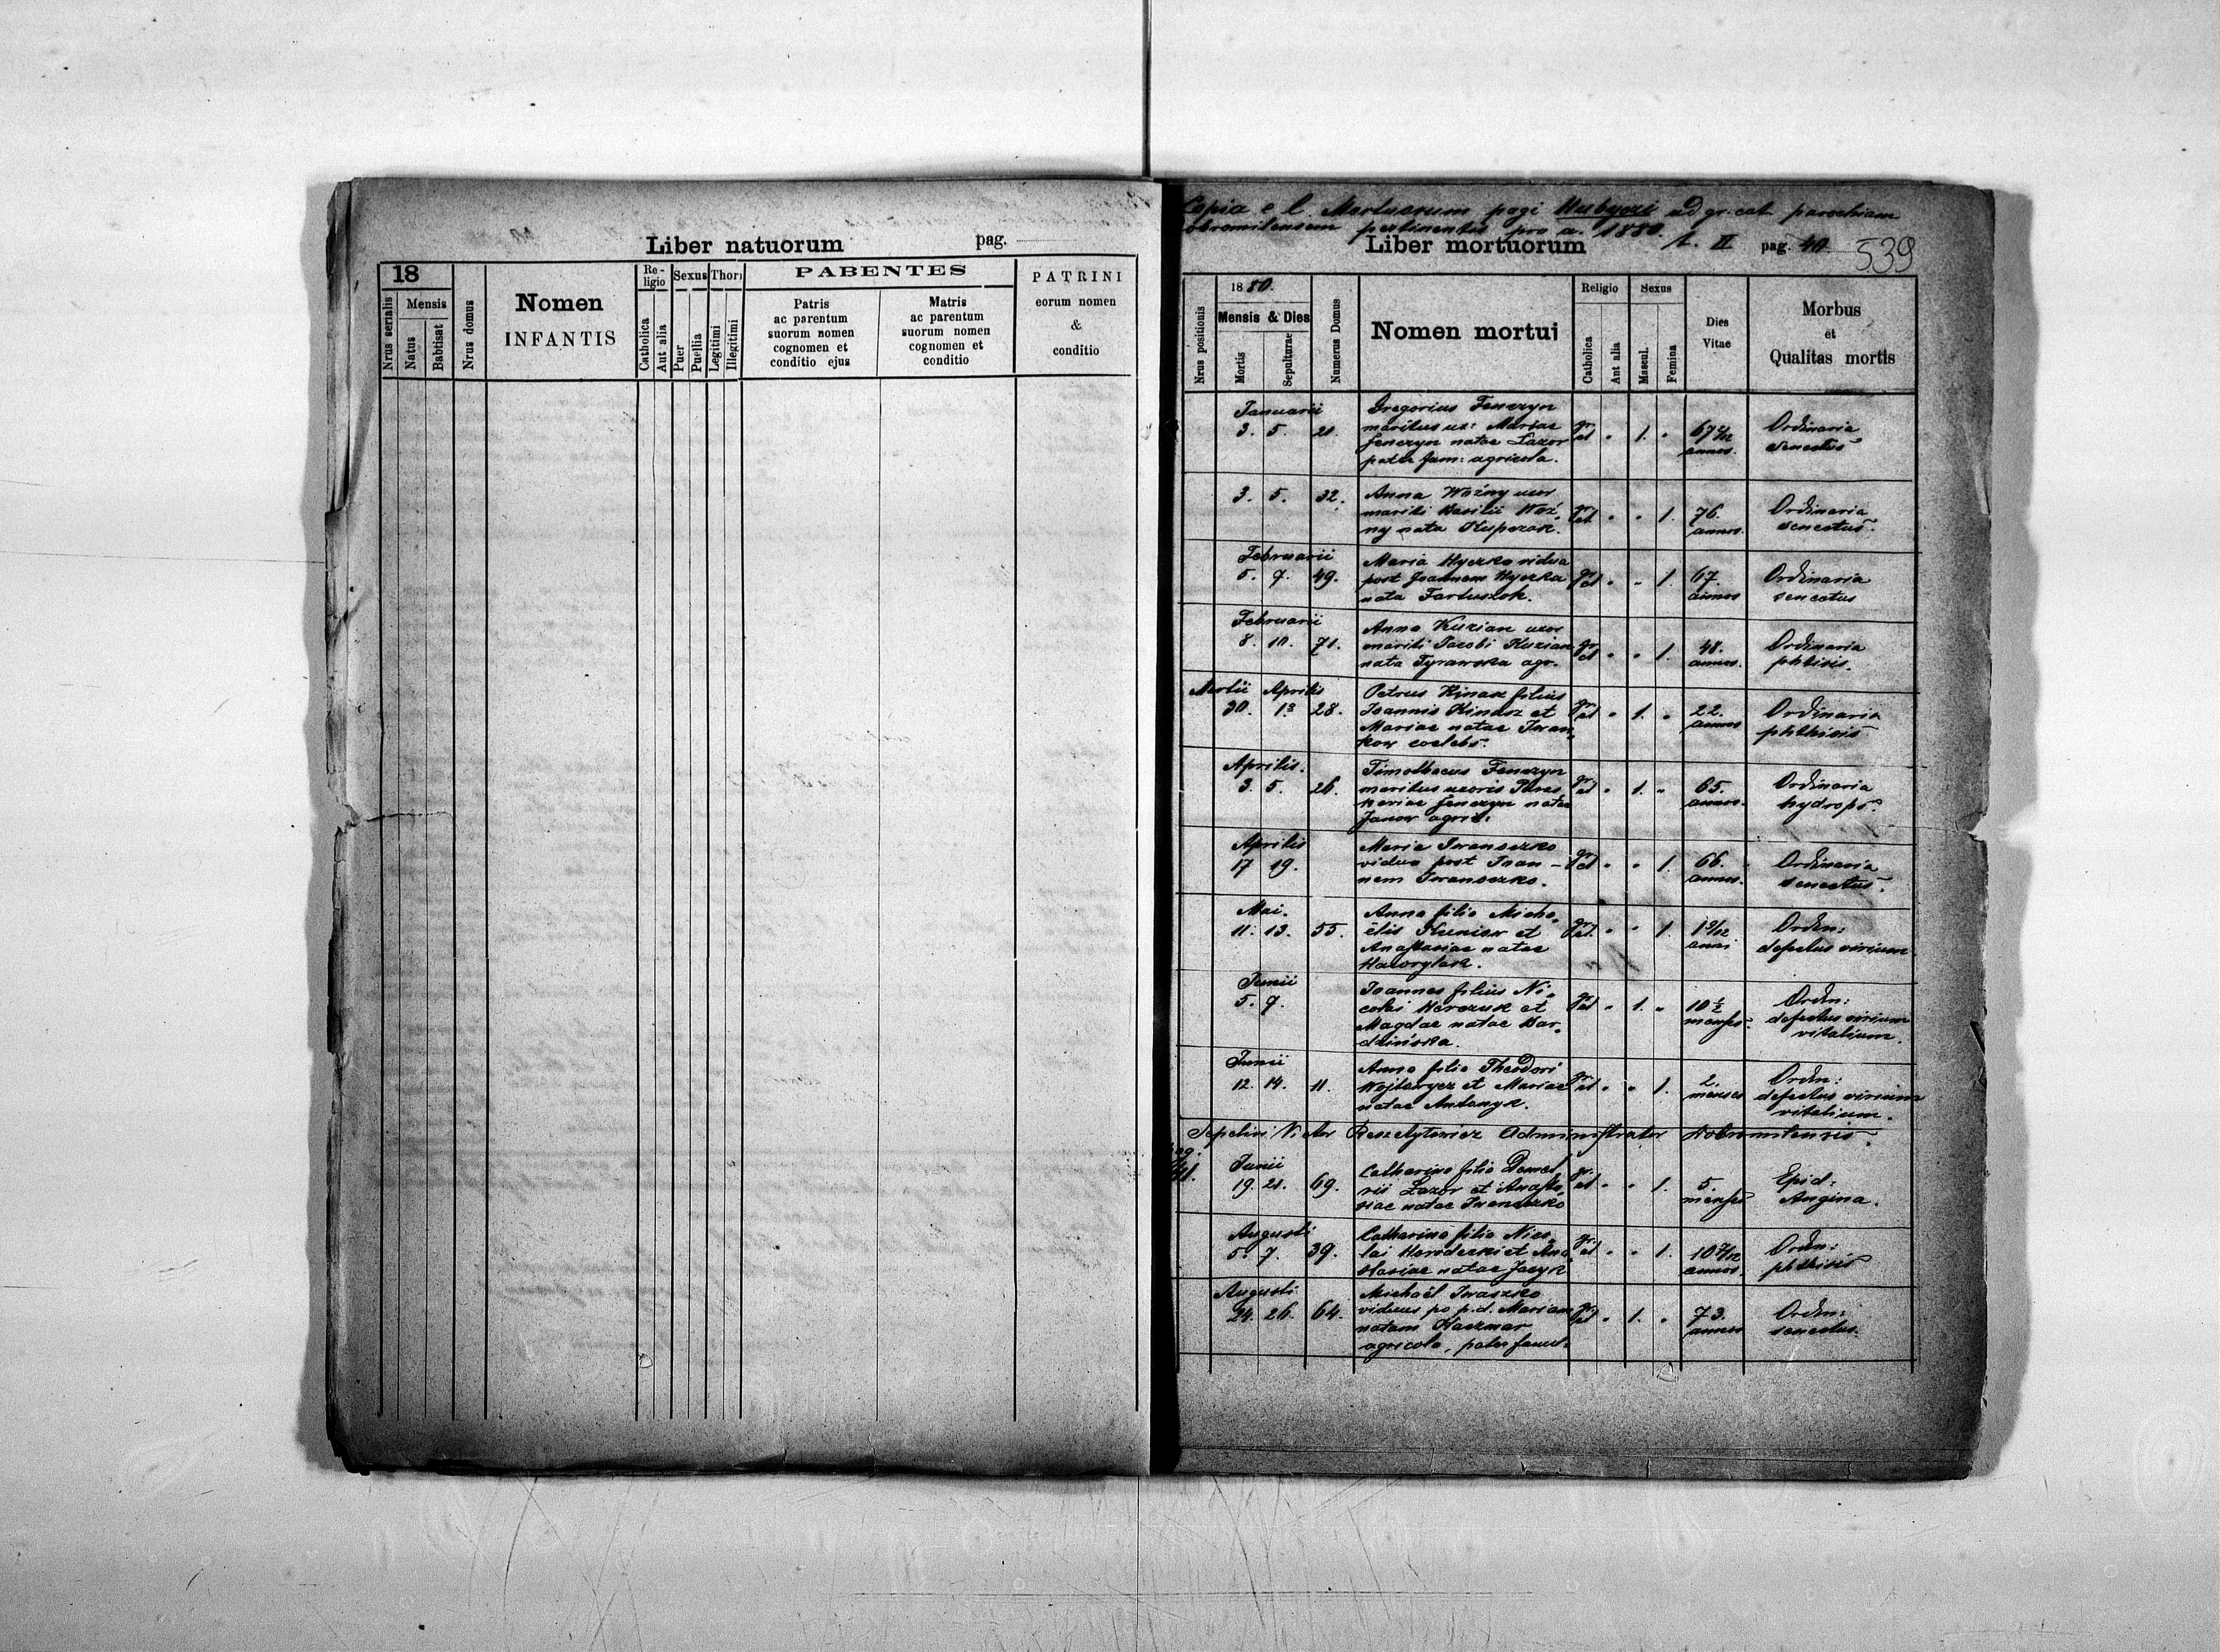 Liber natuorum
pag.
18
Nrus serialis
Mensis
Natus
Babtisat
Nrus domus
Nomen
INFANTIS
Re-
ligio
Catholica
Aut alia
Sexus
Puer
Puellia
Thori
Legitimi
Illegitimi
PABENTES
Patris
ac parentum
suorum nomen
cognomen et
conditio ejus
Matris
ac parentum
suorum nomen
cognomen et
conditio
PATRINI
eorum nomen
&
conditio
Copia e l. Mortuorum pagi Hubyczi ad gr. cat. parochiam
obromilensem pertinentis pro a. 1880.
Liber mortuorum t. II pag. 40. 539
Nrus positionis
1880.
Mensis & Dies
Mortis
Sepulturae
Numerus Domus
Nomen mortui
Religio
Catholica
Ant alia
Sexus
Mascul.
Femina
Dies
Vitae
Morbus
et
Qualitas mortis
Januarii
3. 5. 21.
Gregorius Fenczyn
maritus ux: Mariae
Fenczyn natae Lazor
pater fam: agricola.
gr. ct " 1. "
67 annos.
Ordinaria
senectus
3. 5. 32.
Anna Woźny uxor
mariti Basilii Woź-
ny nata
gr. ct. " " 1.
76. annos.
Ordinaria
senectus.
Februarii
5. 7. 49.
Maria Hyczko vidua
post Joannem Hyczko
nata Fartuszok.
gr. ct " " 1.
67. annos
Ordinaria
senectus
Februarii
8. 10. 71.
Anna Kuzian uxor
mariti Jacobi Kuzian
nata Tyrawska agr.
gr. ct " " 1.
48. annos.
Ordinaria
phtisis.
Martii Aprilis
30. 1. 28.
Petrus Kinasz filius
Joannis Kinasz et
Mariae natae Iwan-
kow coelebs.
gr. ct " 1. "
22. annos
Ordinaria
phthisis
Aprilis.
3. 5. 26.
Timotheus Fenczyn
maritus uxoris Paras-
keviae Fenczyn natae
Janow agric:
gr. ct " 1. "
65. annos.
Ordinaria
hydrops.
Aprilis
17 19.
Maria Iwanoczko
vidua post Joan-
nem Iwanoczko.
gr. ct " " 1.
66. annos.
Ordinaria
senectus.
Mai.
11. 13. 55.
Anna filia Micha-
ëlis et
Anastasiae natae
Hawrylak.
gr. ct. " " 1.
1 9/12 anni
Ordin:
defectus virium
Junii
5. 7.
Joannes filius Ni-
colai et
Magdae natae Bar-
dzińska.
gr. ct " 1. "
10 1/2 menses.
Ordn:
defectus virium
vitalium.
Junii
12. 14. 11.
Anna filia Theodori
Wojtowycz et Mariae
natae Antonyk.
gr. ct " " 1.
2. menses
Ordn:
defectus virium
vitalium.
Sepelivi Victor Reszetyłowicz Administrator Dobromilensis.
pag.
41.
Junii
19. 21. 69.
Catharina filia Demet-
rii Lazor et Anasta-
siae natae Iwanoczko
gr. ct " " 1.
5. menses
Epid:
Angina.
Augusti
5. 7. 39.
Catharina filia Nico-
lai Horodecki et Ana-
stasiae natae Jacyk
gr. ct " " 1.
10 7/12 annos.
Ordn:
phthisis
Augusti
24. 26. 64.
Michaël Iwaszko
viduus po p.d. Mariam
natam Kaczmar
agricola, pater famil:
gr. ct " 1. "
73. annos
Ordn:
senectus.